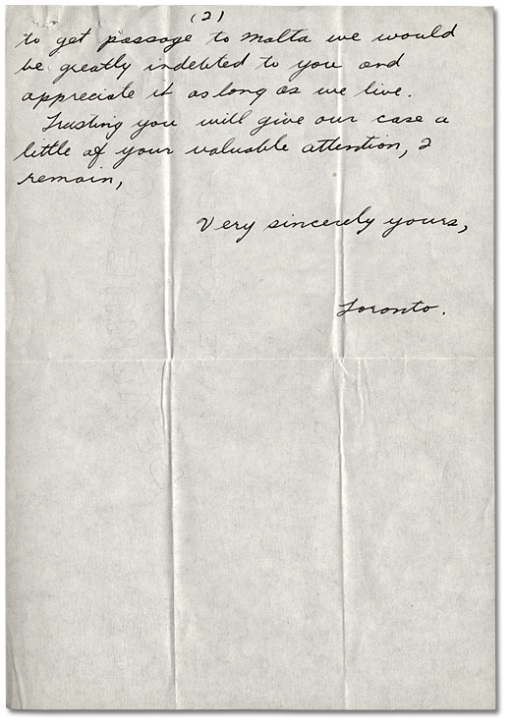 (2)
to get passage to Malta we would
be greatly indebted to you and
appreciate it as long as we live.
Trusting you will give our case a
little of your valuable attention, I
remain,
Very sincerely yours,
Toronto.